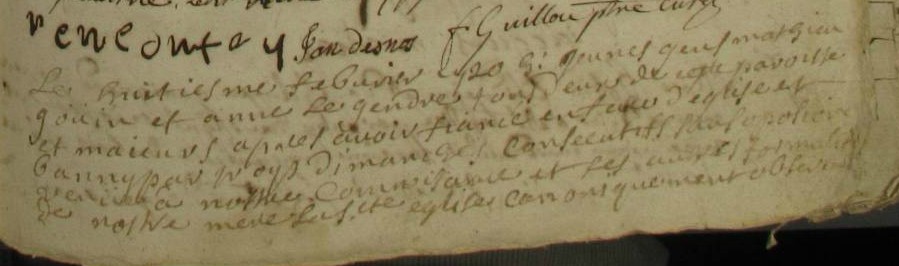 rene couttay Jan desnos f Guillou ptre curé
Le huitiesme febvrier 1720 jeunes gens mathieu
goüin et anne Le gendre tous deux de cette paroisse
et maieurs apres avoir fiancé en face d'eglise et
banny par troys dimanches consecutifs sans oposition
venüe à nostre connoissance et les autres formalités
de nostre mere la Ste eglise canoniquement observé